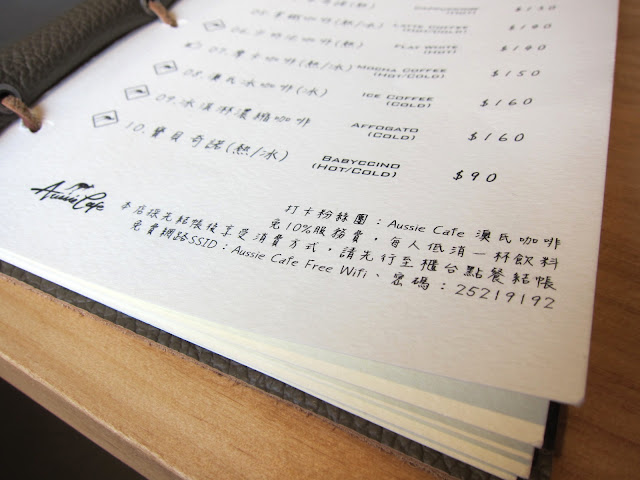 CAPPUCCINO $130
(HOT)
LATTE COFFEE $140
(HOT/COLD)
FLAT WHITE $140
(HOT)
07. 摩卡咖啡(熱/冰) MOCHA COFFEE $150
(HOT/COLD)
08. 澳氏冰咖啡(冰) ICE COFFEE $160
(COLD)
09. 冰淇淋濃縮咖啡 AFFOGATO $160
(COLD)
10. 寶貝奇諾(熱/冰) BABYCCINO $90
(HOT/COLD)
Aussie Cafe
打卡粉絲團：Aussie Cafe 澳氏咖啡
免10%服務費，每人低消一杯飲料
本店採先結帳後享受消費方式，請先行至櫃台點餐結帳
免費網路SSID：Aussie Cafe Free Wifi、密碼：25219192